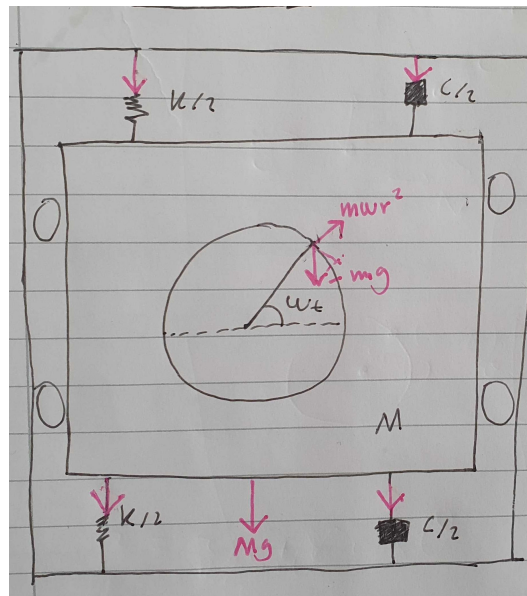 K/2
C/2
mwr²
mg
wt
M
K/2
Mg
C/2